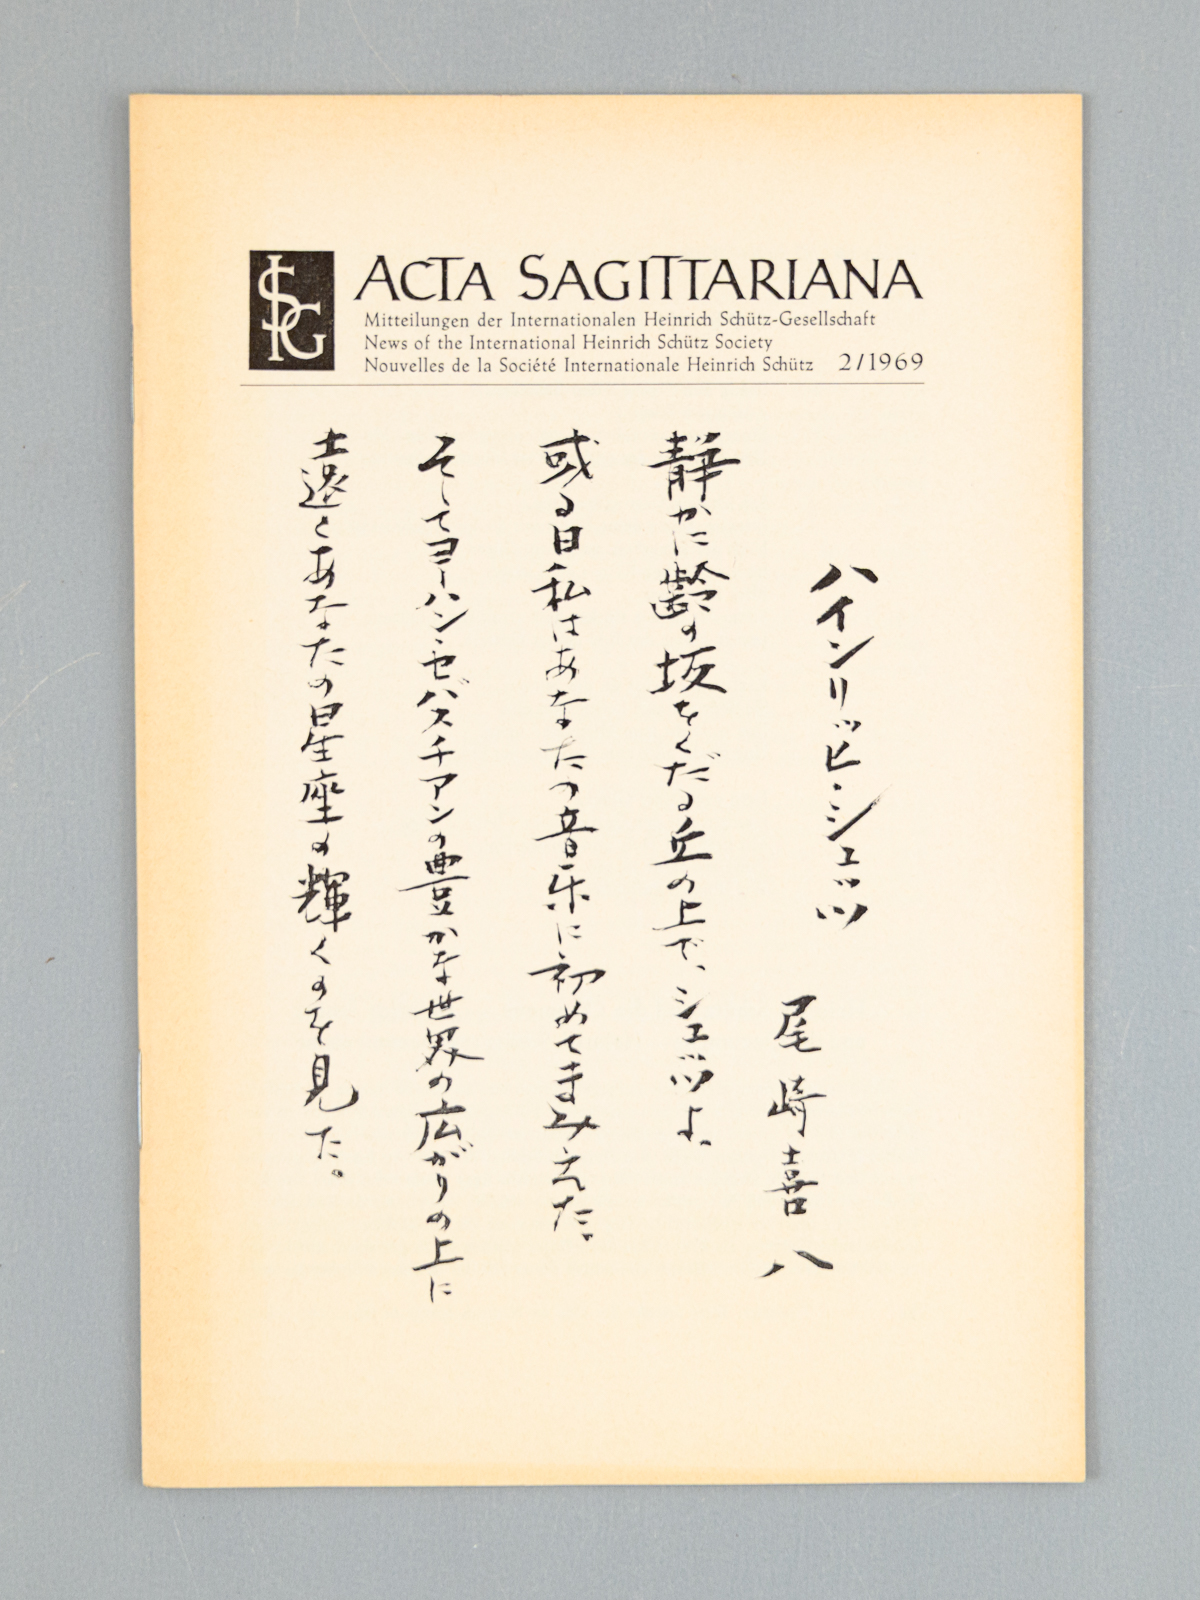 ISG
ACTA SAGITTARIANA
Mitteilungen der Internationalen Heinrich Schütz-Gesellschaft
News of the International Heinrich Schütz Society
Nouvelles de la Société Internationale Heinrich Schütz 2/1969
ハインリッヒ・シュッツ
尾崎喜八
静かに齢の坂をくだる丘の上で、シュッツよ、
或る日私はあなたの音楽に初めてまみえた。
そしてヨーハン・セバスチアンの豊かな世界の広がりの上に
遠くあなたの星座の輝くのを見た。